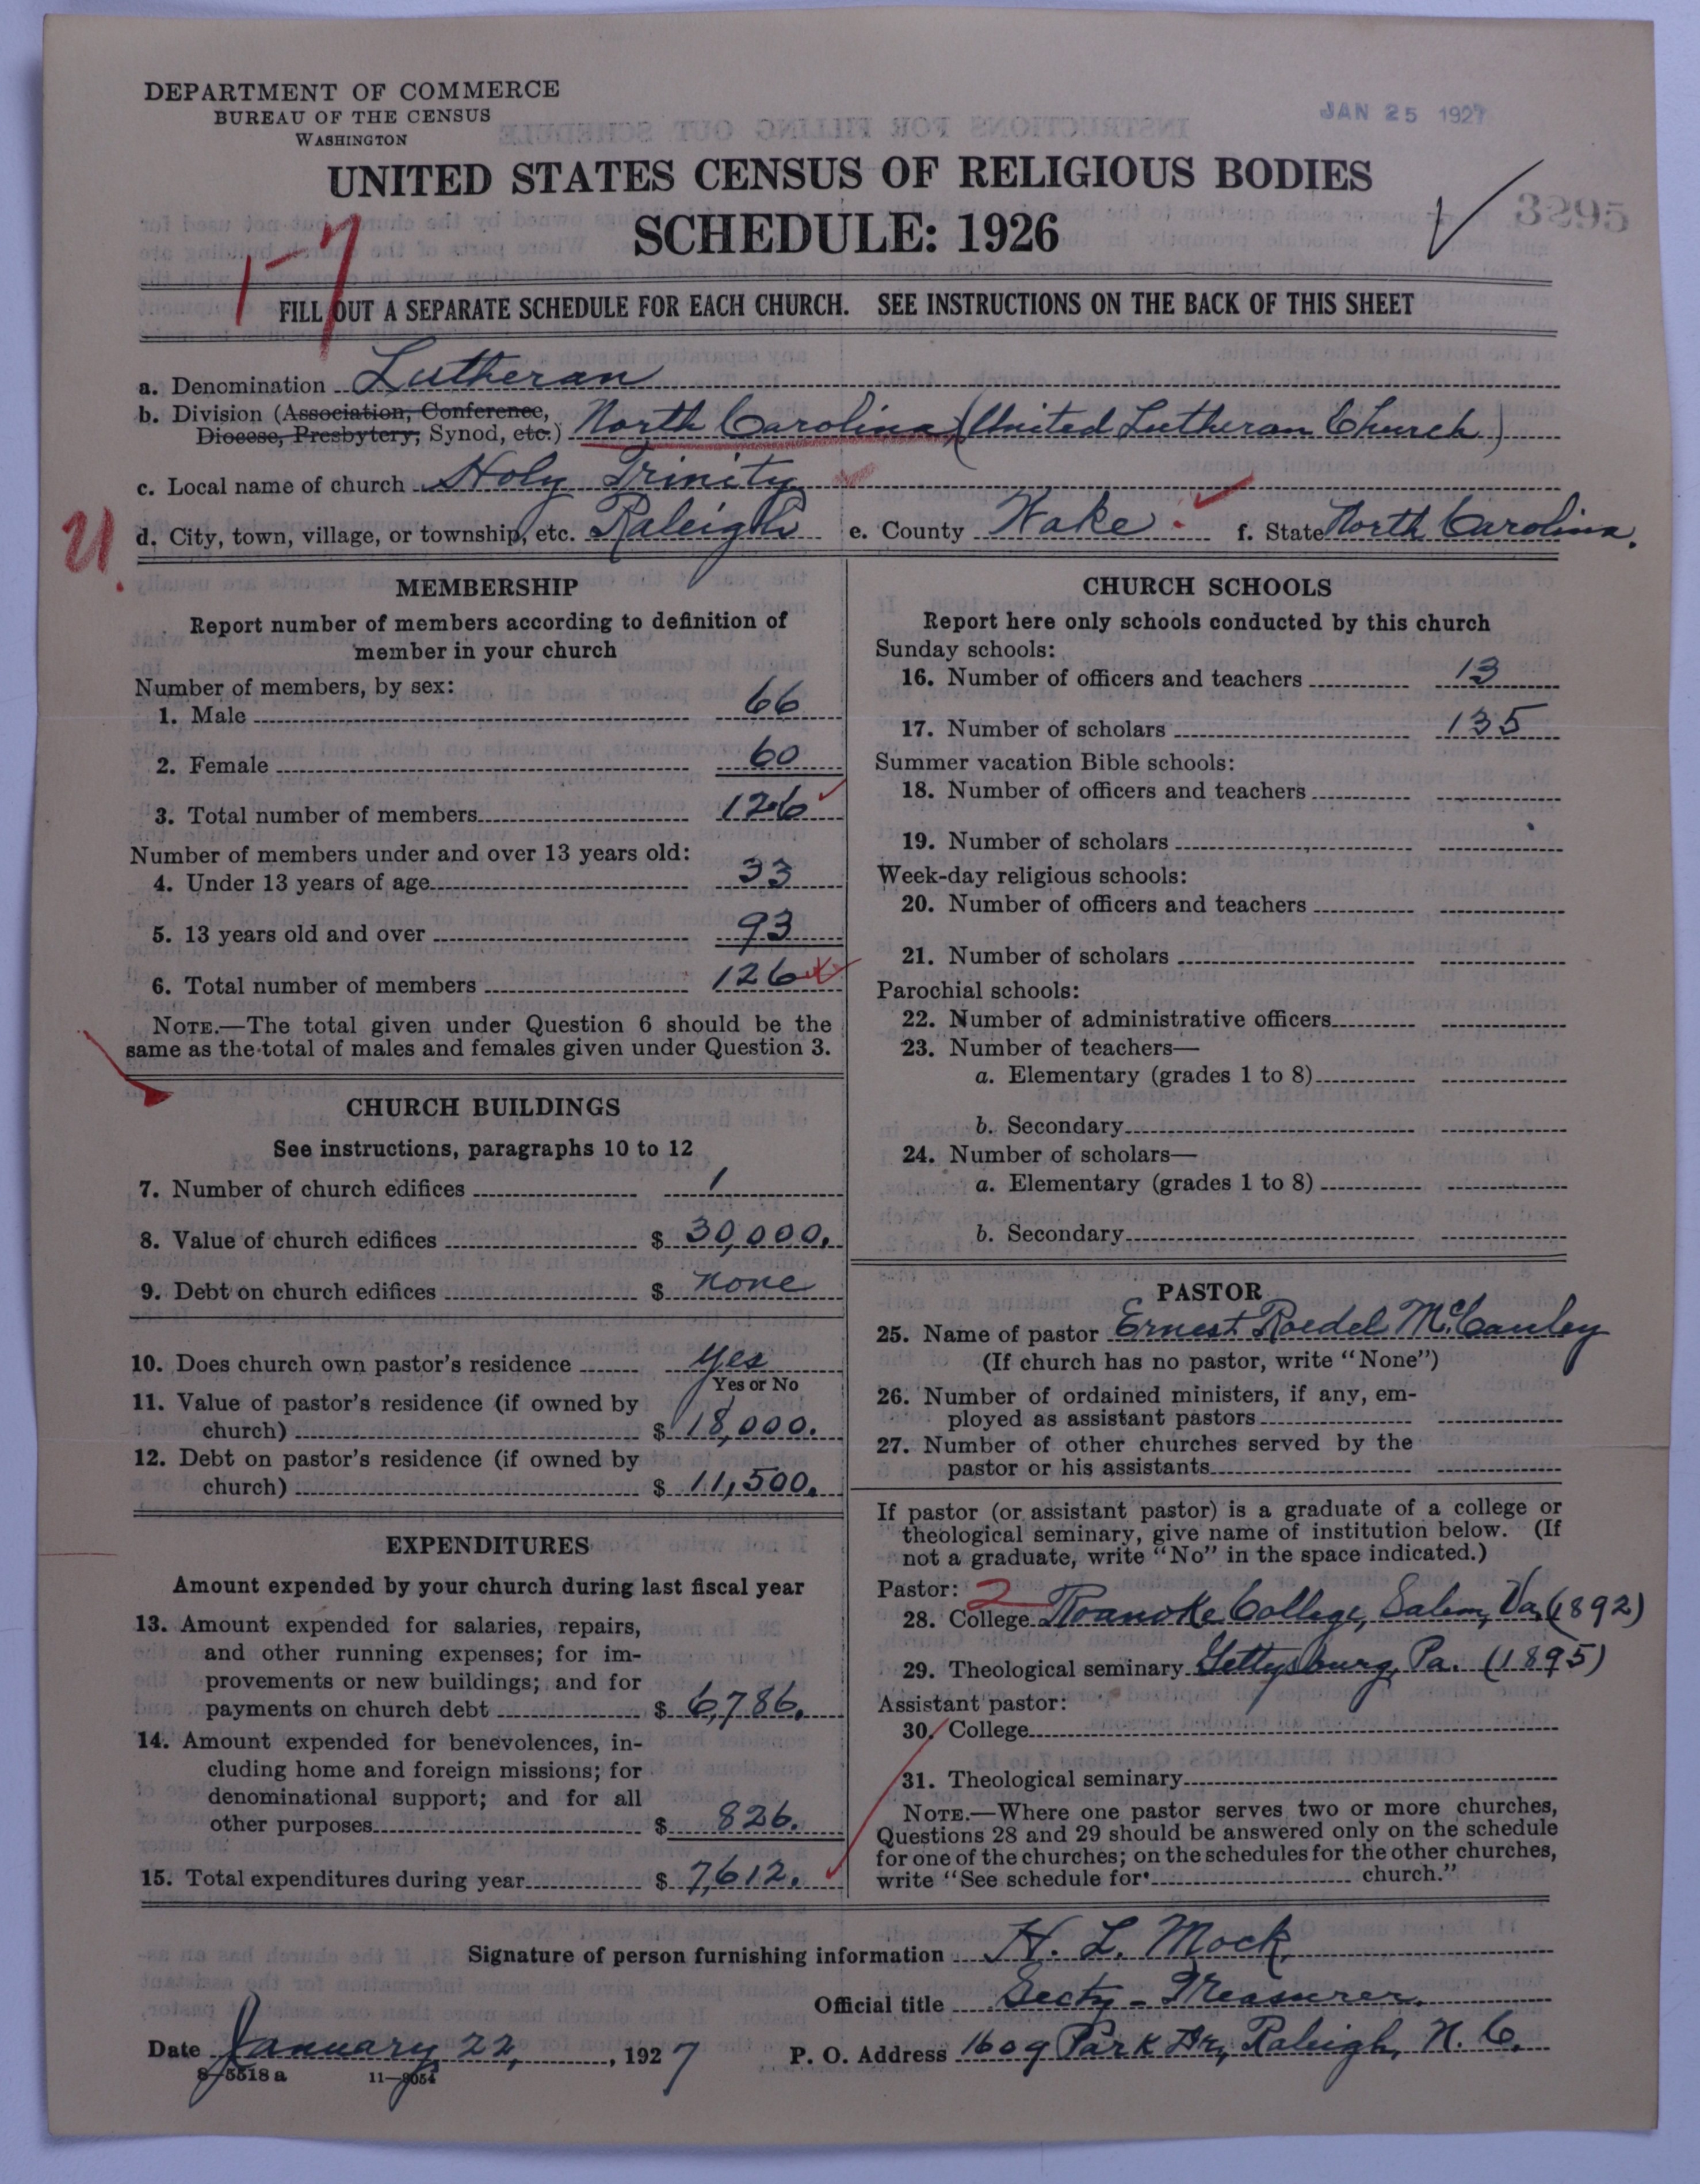 DEPARTMENT OF COMMERCE
BUREAU OF THE CENSUS
WASHINGTON
JAN 25 1927
UNITED STATES CENSUS OF RELIGIOUS BODIES
SCHEDULE: 1926
3295
17
FILL OUT A SEPARATE SCHEDULE FOR EACH CHURCH. SEE INSTRUCTIONS ON THE BACK OF THIS SHEET
a. Denomination Lutheran
b. Division (Association, Conference,
Diocese, Presbytery, Synod, etc.) North Carolina, (United Lutheran Church)
c. Local name of church Holy Trinity
U.
d. City, town, village, or township, etc. Raleigh e. County Wake. f. State North Carolina.
MEMBERSHIP
Report number of members according to definition of
member in your church
Number of members, by sex:
1. Male 66
2. Female 60
3. Total number of members 126
Number of members under and over 13 years old:
4. Under 13 years of age 33
5. 13 years old and over 93
6. Total number of members 126
NOTE.—The total given under Question 6 should be the
same as the total of males and females given under Question 3.
CHURCH BUILDINGS
See instructions, paragraphs 10 to 12
7. Number of church edifices 1
8. Value of church edifices $ 30,000.
9. Debt on church edifices $ none
10. Does church own pastor's residence yes
Yes or No
11. Value of pastor's residence (if owned by
church) $ 18,000.
12. Debt on pastor's residence (if owned by
church) $ 11,500.
EXPENDITURES
Amount expended by your church during last fiscal year
13. Amount expended for salaries, repairs,
and other running expenses; for im-
provements or new buildings; and for
payments on church debt $ 6,786.
14. Amount expended for benevolences, in-
cluding home and foreign missions; for
denominational support; and for all
other purposes $ 826.
15. Total expenditures during year $ 7,612.
CHURCH SCHOOLS
Report here only schools conducted by this church
Sunday schools:
16. Number of officers and teachers 13
17. Number of scholars 135
Summer vacation Bible schools:
18. Number of officers and teachers
19. Number of scholars
Week-day religious schools:
20. Number of officers and teachers
21. Number of scholars
Parochial schools:
22. Number of administrative officers
23. Number of teachers—
a. Elementary (grades 1 to 8)
b. Secondary
24. Number of scholars—
a. Elementary (grades 1 to 8)
b. Secondary
PASTOR
25. Name of pastor Ernest Roedel McCauley
(If church has no pastor, write "None")
26. Number of ordained ministers, if any, em-
ployed as assistant pastors
27. Number of other churches served by the
pastor or his assistants
If pastor (or assistant pastor) is a graduate of a college or
theological seminary, give name of institution below. (If
not a graduate, write "No" in the space indicated.)
Pastor: 2
28. College Roanoke College, Salem, Va. (1892)
29. Theological seminary Gettysburg, Pa. (1895)
Assistant pastor:
30. College
31. Theological seminary
NOTE.—Where one pastor serves two or more churches,
Questions 28 and 29 should be answered only on the schedule
for one of the churches; on the schedules for the other churches,
write "See schedule for church."
Signature of person furnishing information H. L. Mock
Official title Secty - Treasurer.
Date January 22, 1927 P. O. Address 1609 Park Dr, Raleigh, N. C.
8-5518 a 11-9054